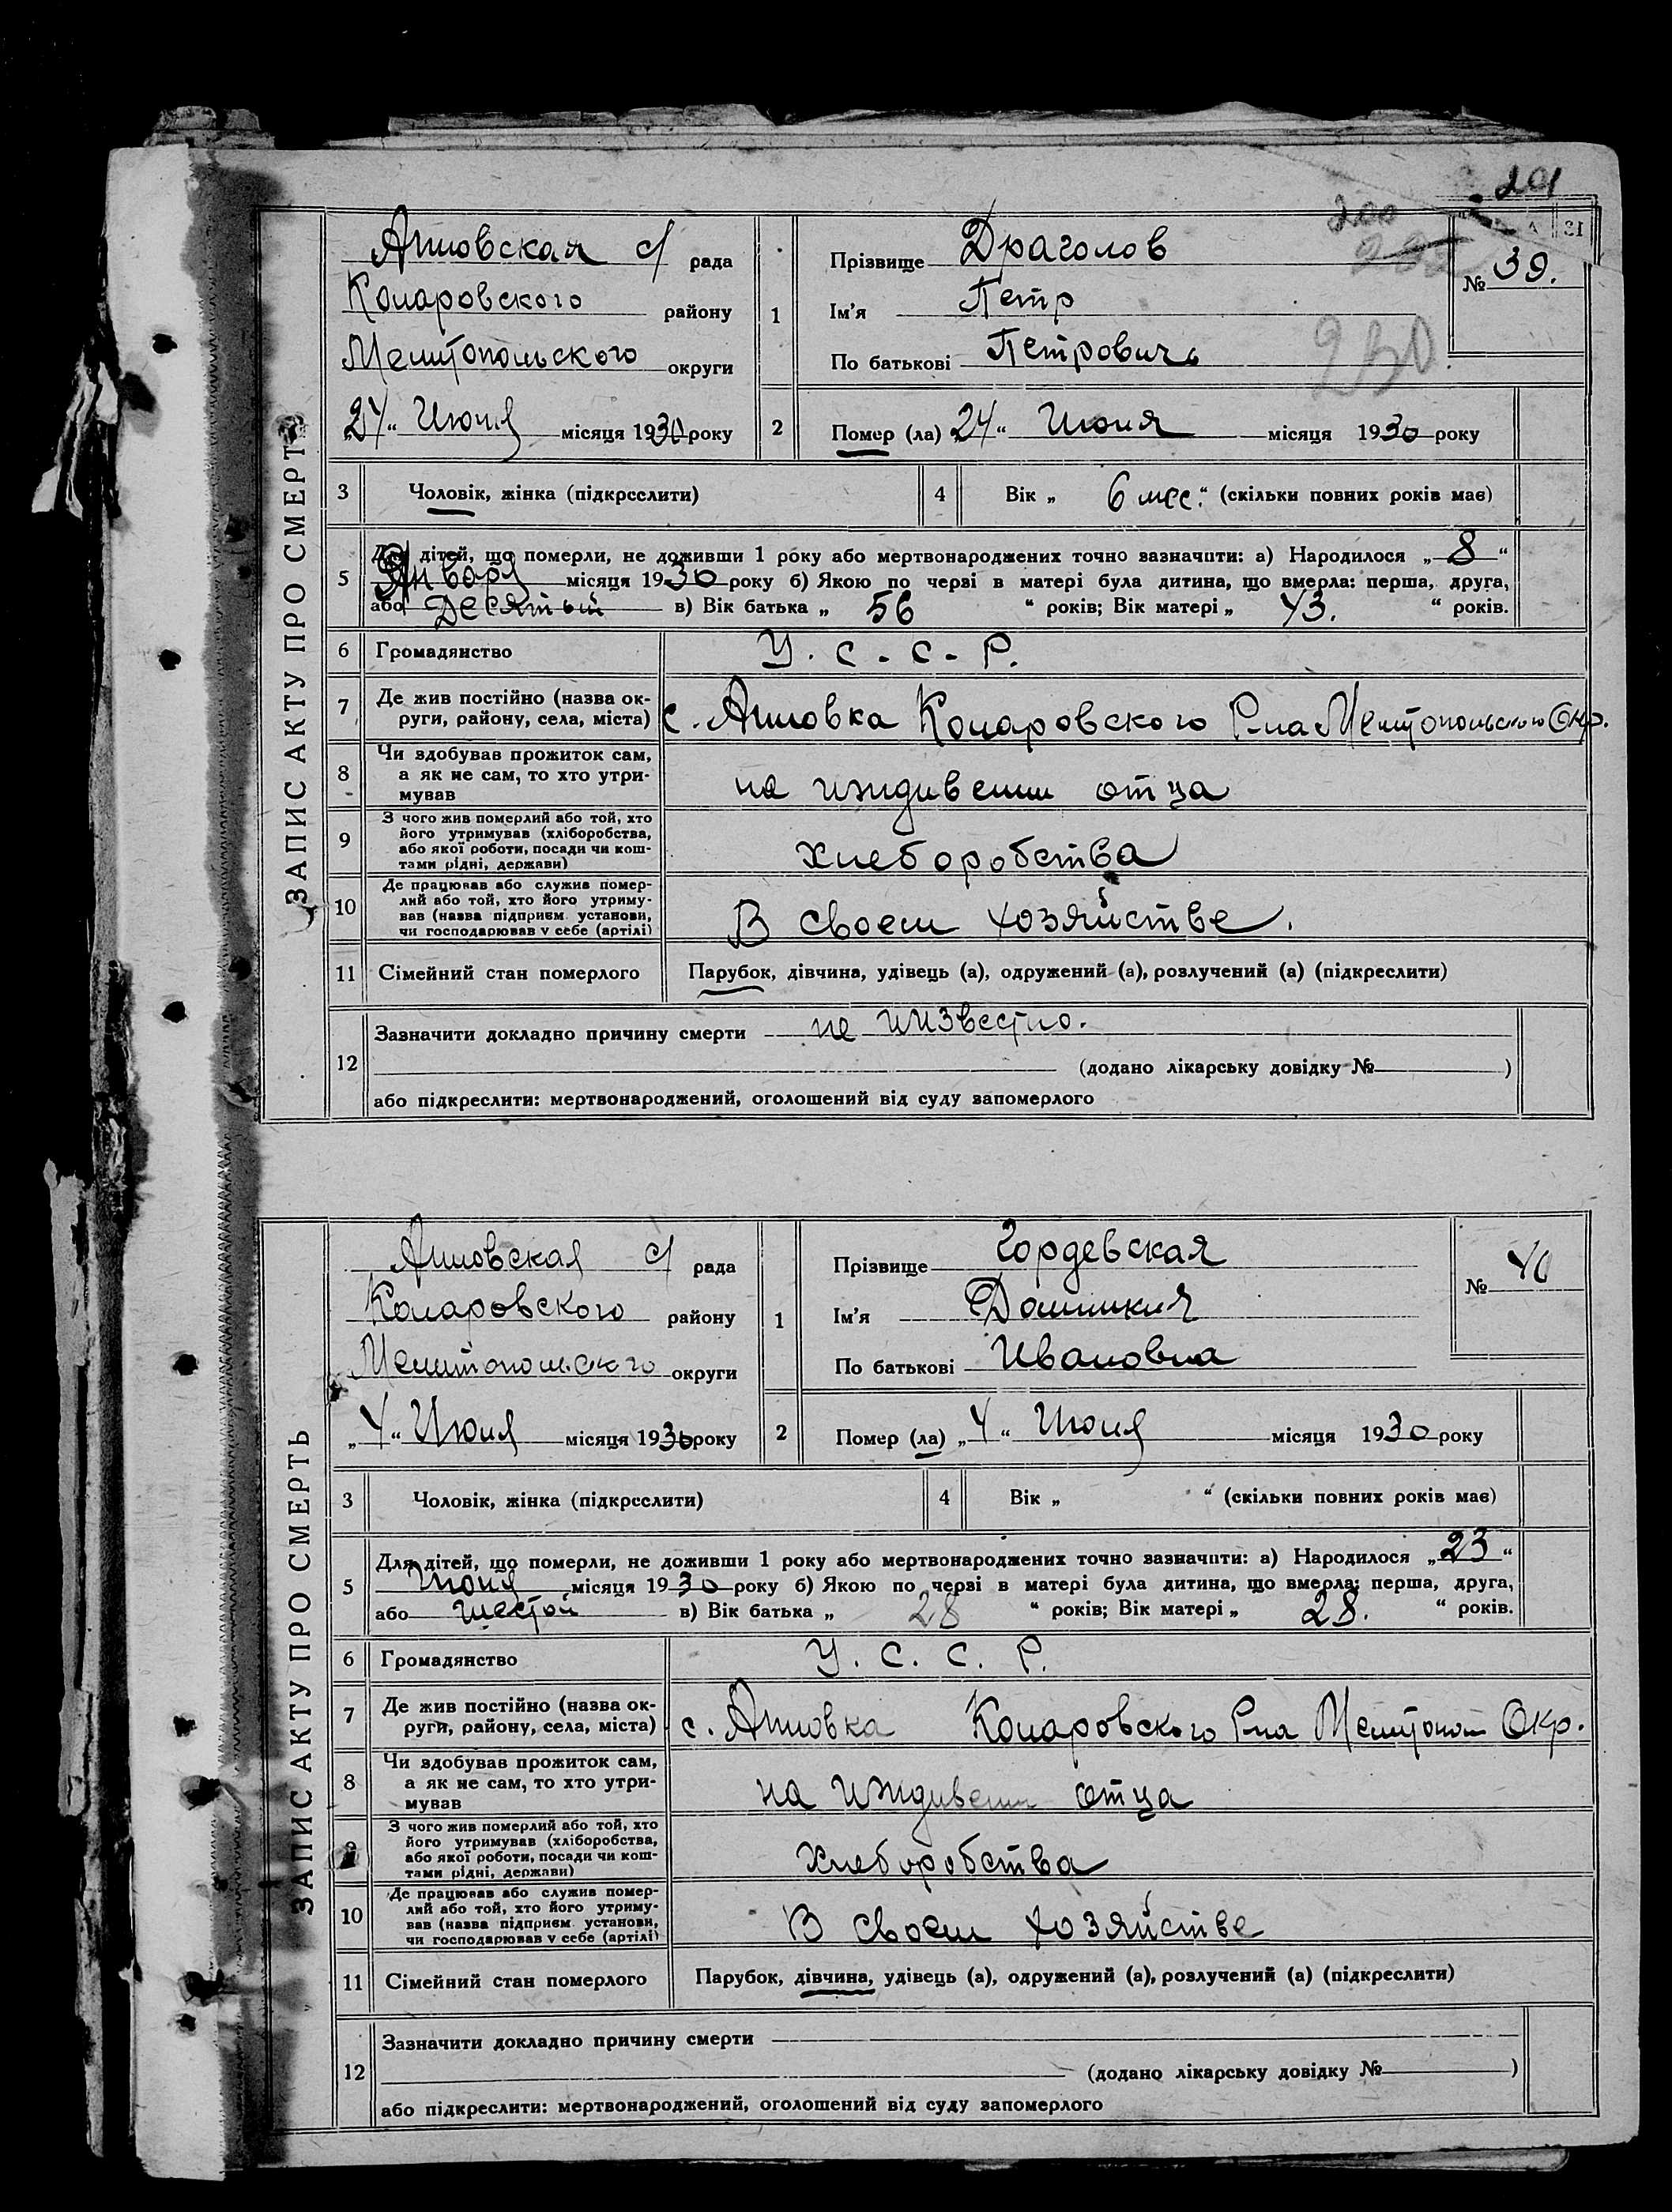 201
200
230
ЗАПИС АКТУ ПРО СМЕРТЬ
Анновская с/ рада
Коларовского району
Мелитопольского округи
„24“ Июня місяця 1930 року
1
Прізвище Драголов
Ім'я Петр
По батькові Петрович
№ 39.
2
Помер (ла) „24“ Июня місяця 1930 року
3 Чоловік, жінка (підкреслити)
4 Вік „ 6 мес.“ (скільки повних років має)
5 Для дітей, що померли, не доживши 1 року або мертвонароджених точно зазначити: а) Народилося „8“
Января місяця 1930 року б) Якою по черві в матері була дитина, що вмерла: перша, друга,
або Десятый в) Вік батька „ 56 “ років; Вік матері „ 43. “ років.
6 Громадянство У. С. С. Р.
7 Де жив постійно (назва ок-
руги, району, села, міста) с. Анновка Коларовского Р-на Мелитопольского Окр.
8 Чи здобував прожиток сам,
а як не сам, то хто утри-
мував на иждивении отца
9 З чого жив померлий або той, хто
його утримував (хліборобства,
або якої роботи, посади чи кош-
тами рідні, держави) хлеборобства
10 Де працював або служив помер-
лий або той, хто його утриму-
вав (назва підприєм. установи,
чи господарював у себе (артілі) В своем хозяйстве.
11 Сімейний стан померлого Парубок, дівчина, удівець (а), одружений (а), розлучений (а) (підкреслити)
12 Зазначити докладно причину смерти не иизвестно.
(додано лікарську довідку № )
або підкреслити: мертвонароджений, оголошений від суду запомерлого
ЗАПИС АКТУ ПРО СМЕРТЬ
Анновская с/ рада
Коларовского району
Мелитопольского округи
„4“ Июля місяця 1930 року
1
Прізвище Гордевская
Ім'я Доминикия
По батькові Ивановна
№ 40
2
Помер (ла) „4“ Июля місяця 1930 року
3 Чоловік, жінка (підкреслити)
4 Вік „ “ (скільки повних років має)
5 Для дітей, що померли, не доживши 1 року або мертвонароджених точно зазначити: а) Народилося „23“
Июня місяця 1930 року б) Якою по черві в матері була дитина, що вмерла: перша, друга,
або шестой в) Вік батька „ 28 “ років; Вік матері „ 28. “ років.
6 Громадянство У. С. С. Р.
7 Де жив постійно (назва ок-
руги, району, села, міста) с. Анновка Коларовского Р-на Мелитопол Окр.
8 Чи здобував прожиток сам,
а як не сам, то хто утри-
мував на иждивении отца
9 З чого жив померлий або той, хто
його утримував (хліборобства,
або якої роботи, посади чи кош-
тами рідні, держави) хлеборобства
10 Де працював або служив помер-
лий або той, хто його утриму-
вав (назва підприєм. установи,
чи господарював у себе (артілі) В своем хозяйстве
11 Сімейний стан померлого Парубок, дівчина, удівець (а), одружений (а), розлучений (а) (підкреслити)
12 Зазначити докладно причину смерти
(додано лікарську довідку № )
або підкреслити: мертвонароджений, оголошений від суду запомерлого